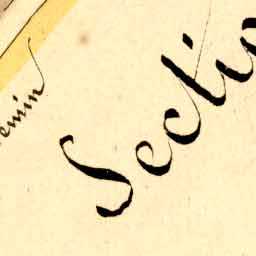 emin
Sectio